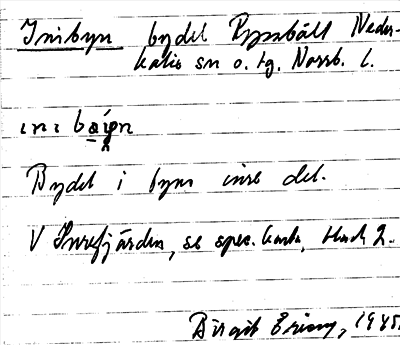 Inibyn bydel Ryssbält Neder-
kalix sn o. tg. Norrb. l.
ini
Bydel i byns inre del.
V Inrefjärden, se spec. karta, blad 2.
Birgit 1945.